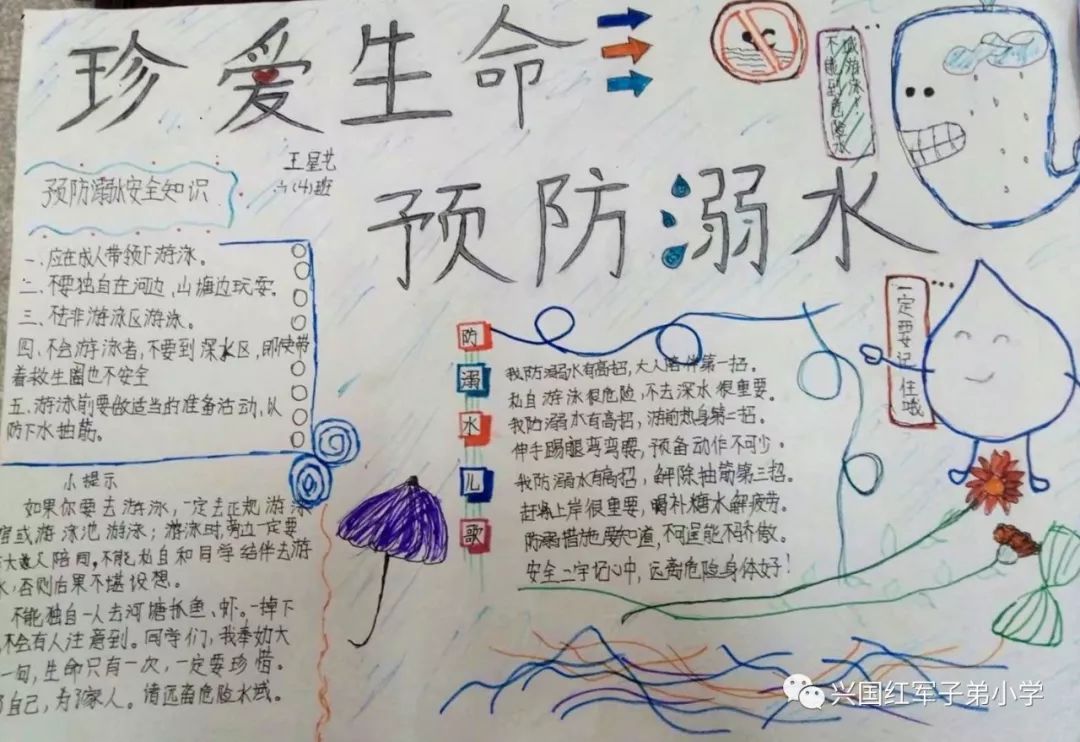 珍爱生命
预防溺水
王星艺
六(4)班
不
危险水
域游泳!
预防溺水安全知识
一、应在成人带领下游泳。
二、不要独自在河边、山塘边玩耍。
三、不去非游泳区游泳。
四、不会游泳者,不要到深水区,即使带
着救生圈也不安全
五、游泳前要做适当的准备活动,以
防下水抽筋。
小提示
如果你要去游泳,一定去正规游泳
馆或游泳池游泳;游泳时,旁边一定要
大人陪同,不能私自和同学结伴去游
水,否则后果不堪设想。
不能独自一人去河塘抓鱼、虾。一掉下
不会有人注意到。同学们,我奉劝大
一句,生命只有一次,一定要珍惜。
了自己,为了家人。请远离危险水域。
防溺水儿歌
我防溺水有高招,大人陪伴第一招。
私自游泳很危险,不去深水很重要。
我防溺水有高招,游前热身第二招。
伸手踢腿弯弯腰,预备动作不可少。
我防溺水有高招,解除抽筋第三招。
赶快上岸很重要,嚼补糖水解疲劳。
防溺措施也要知道,不可逞能不骄傲。
安全二字记心中,远离危险身体好!
一定要记住哦
兴国红军子弟小学